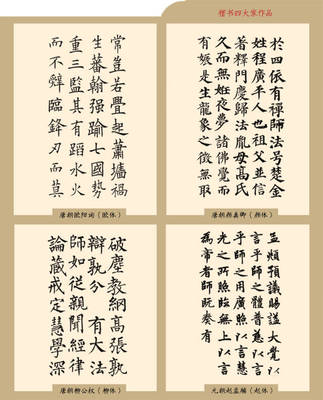 楷书四大家作品
常豈若舋起蕭墻禍
生蕃翰强踰七國勢
重三監其有蹈水火
而不辤臨鋒刃而莫
唐朝欧阳询（欧体）
於四依有禪師法号楚金
姓程廣平人也祖父並信
著釋門慶歸法胤母高氏
久而無姙夜夢諸佛覺而
有娠是生龍象之徵無取
唐朝颜真卿（颜体）
破塵教網高張孰
辯孰分 有大法
師如從親聞經律
論藏戒定慧學深
唐朝柳公权（柳体）
孟頫預議賜謚大覺以
言乎師之體普慈以言
乎師之用廣照以言慧
光之所照臨無上以言
為帝者師既奏有
元朝赵孟頫（赵体）